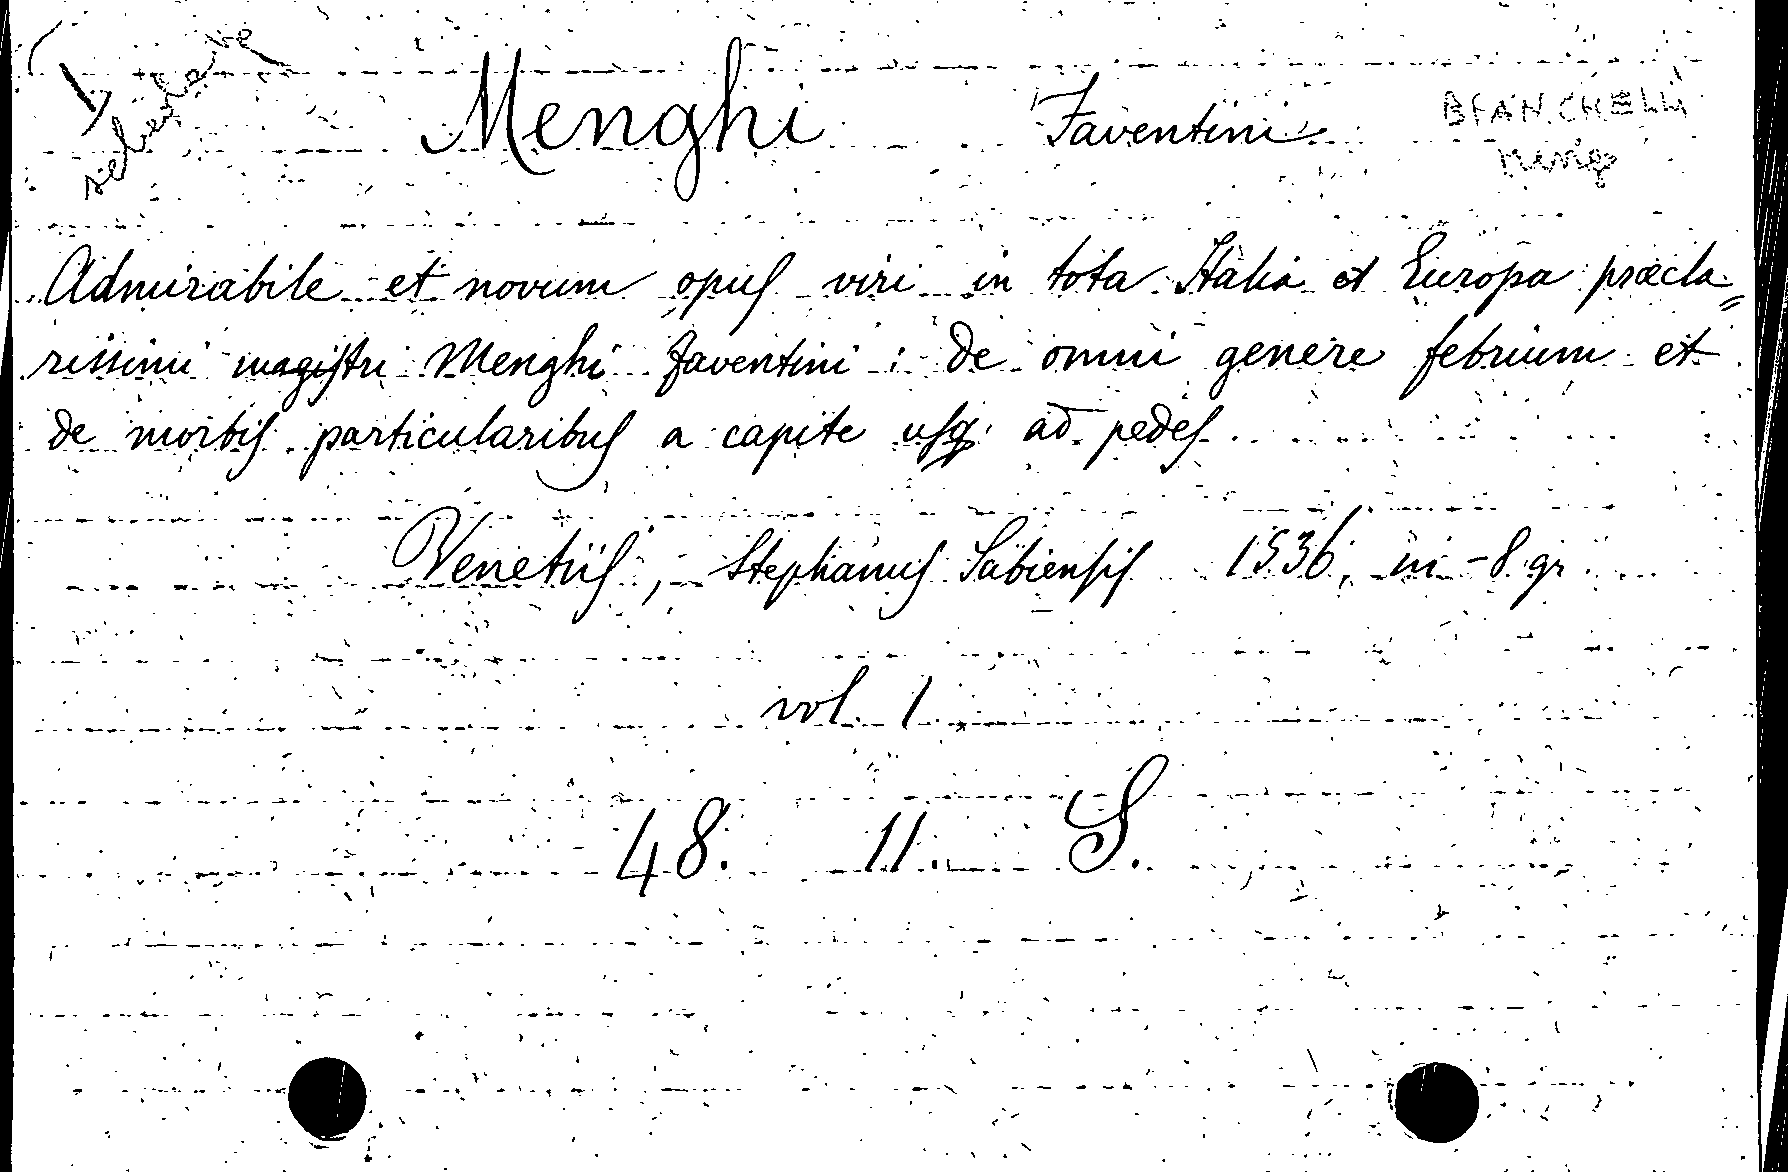 Menghi Faventini BIANCHELLI
Mengo
Admirabile et novum opuſ viri in tota Italia et Europa præcla=
rissimi magiſtri Menghi Faventini : de omni genere febrium et
de morbiſ particularibuſ a capite uſq; ad pedeſ
Venetiiſ, Stephanuſ Sabienſiſ 1536, in-8 gr.
vol. 1
48. 11. S.